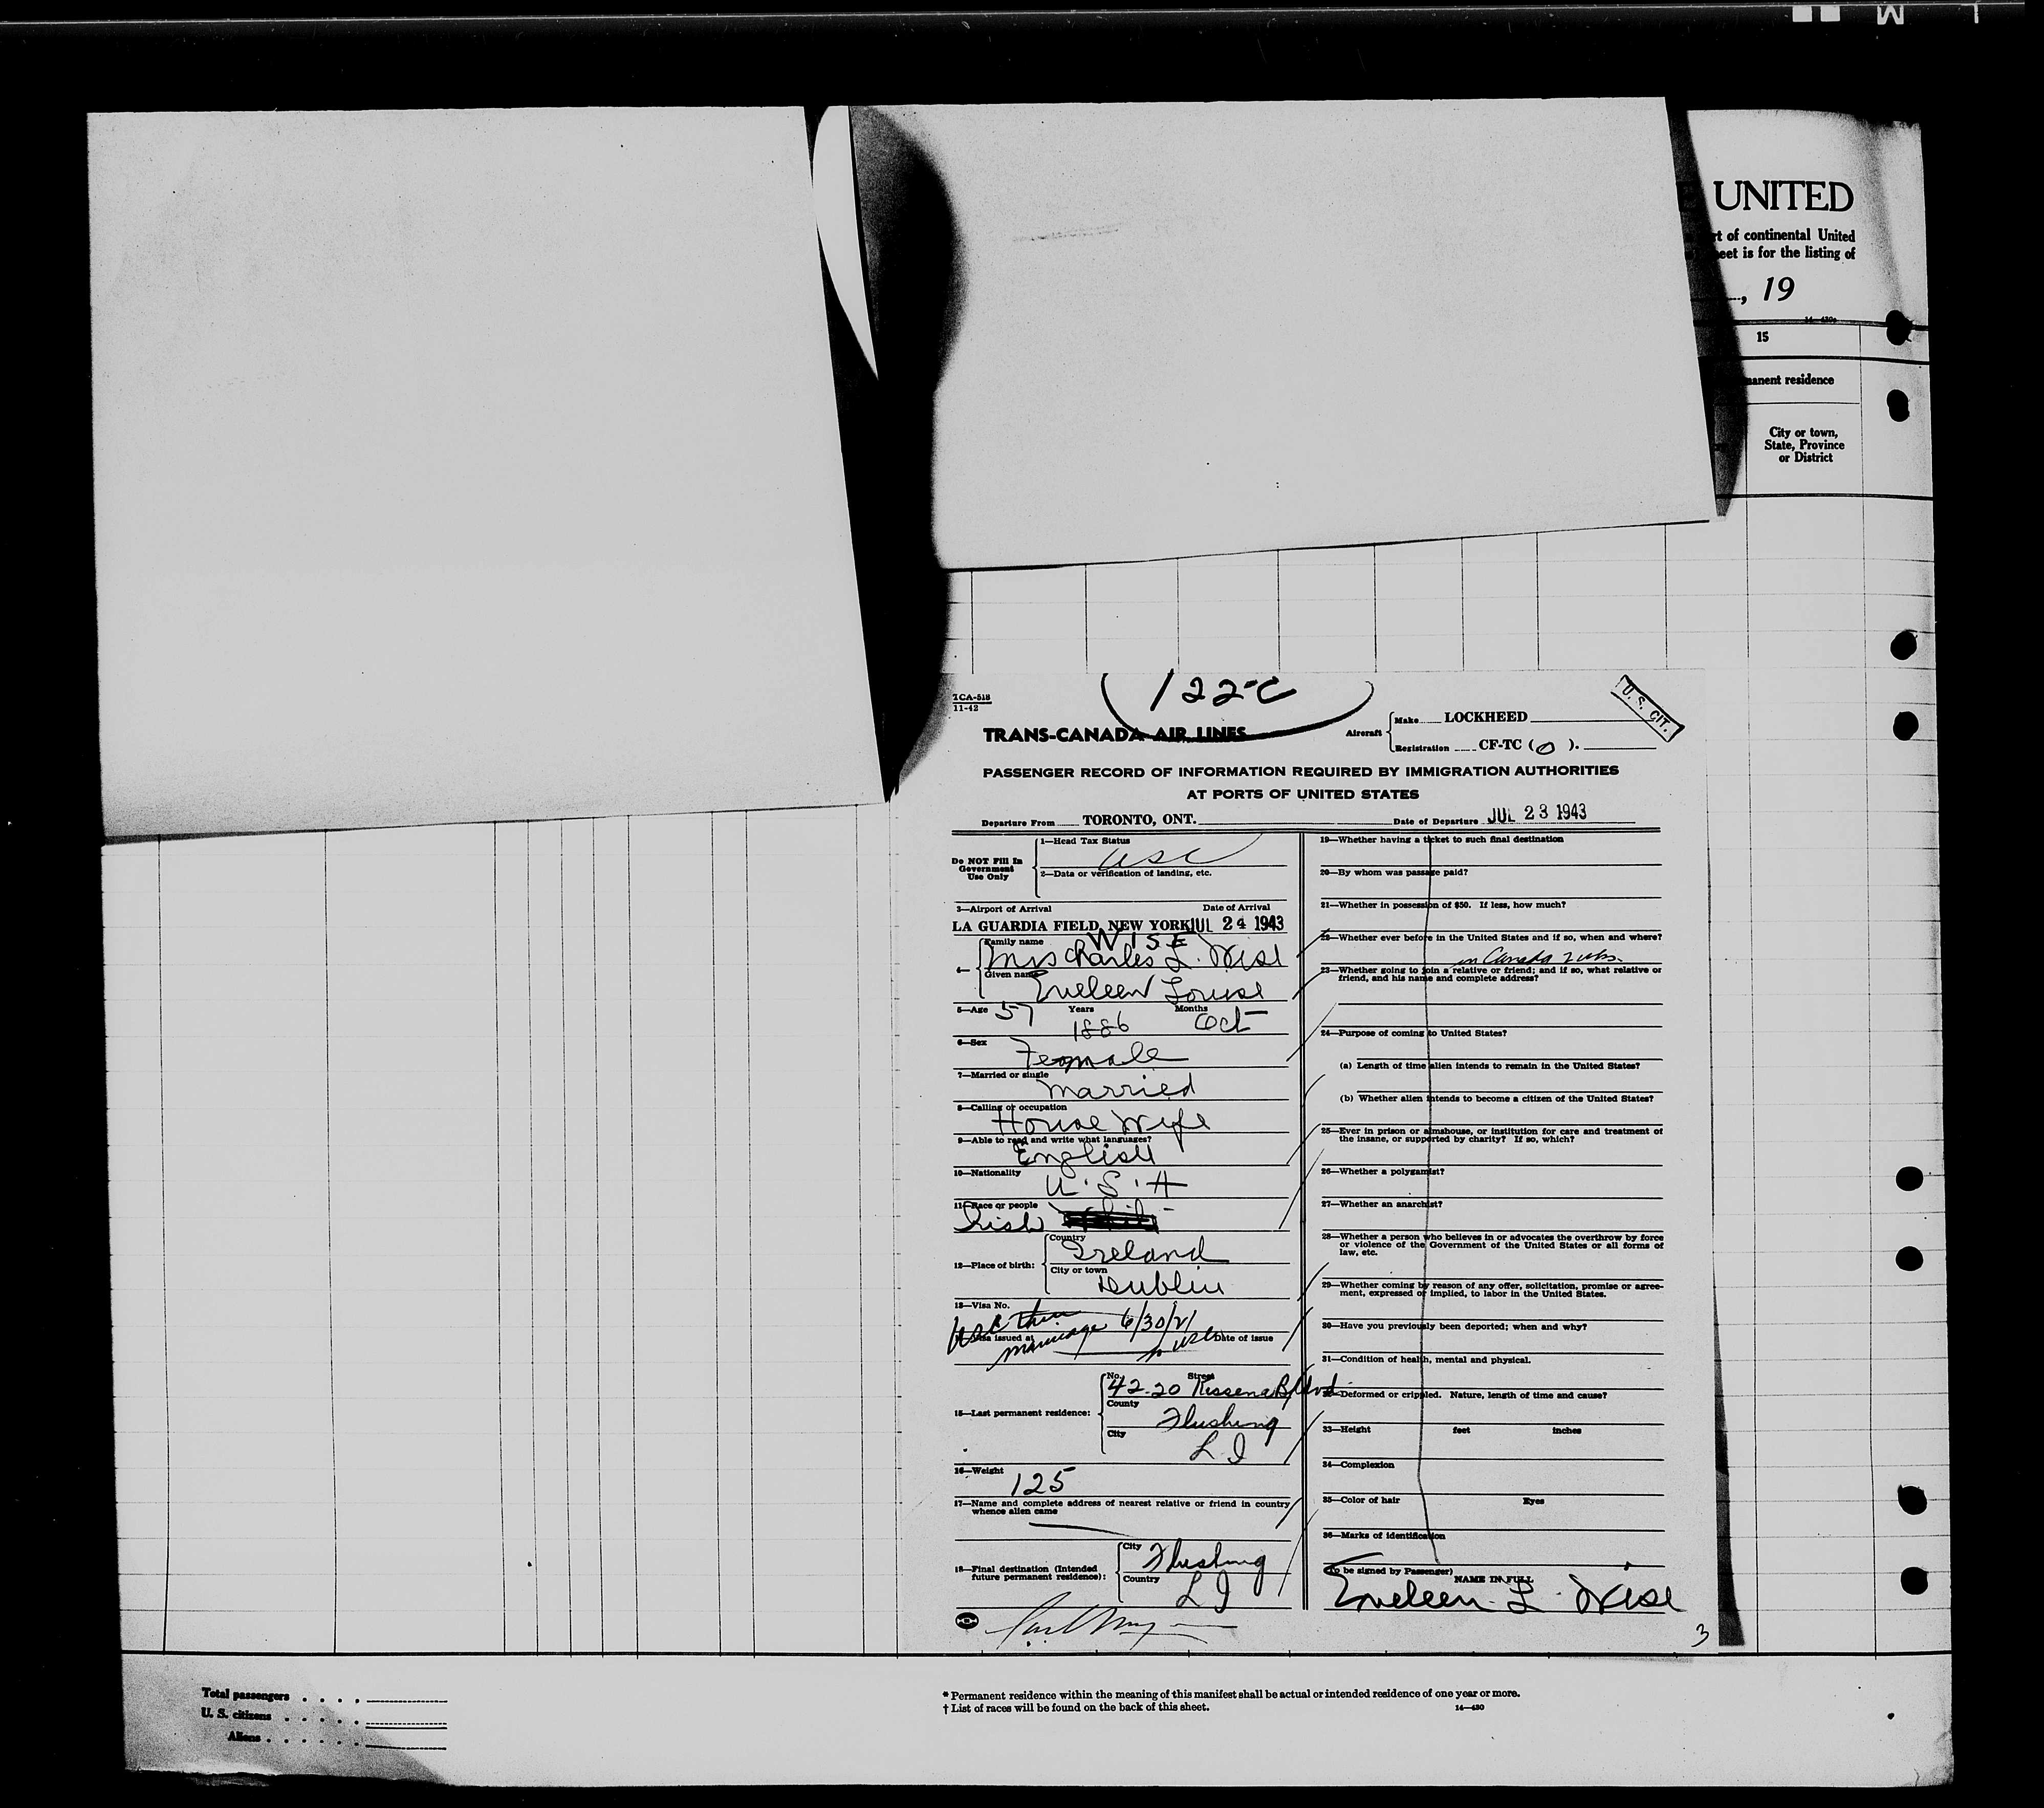 UNITED
rt of continental United
eet is for the listing of
, 19
14—430
15
anent residence
City or town,
State, Province
or District
TCA-518
11-42
122-C
U. S. CIT.
TRANS-CANADA AIR LINES
Aircraft
Make LOCKHEED
Registration CF-TC (O).
PASSENGER RECORD OF INFORMATION REQUIRED BY IMMIGRATION AUTHORITIES
AT PORTS OF UNITED STATES
Departure From TORONTO, ONT. Date of Departure JUL 23 1943
Do NOT Fill In
Government
Use Only
1—Head Tax Status
usc
2—Data or verification of landing, etc.
3—Airport of Arrival Date of Arrival
LA GUARDIA FIELD, NEW YORK JUL 24 1943
4— Family name WISE
Mrs Charles L. Wise
Given name
Eveleen Louise
5—Age 57 Years 1886 Months Oct
6—Sex
Female
7—Married or single
Married
8—Calling or occupation
House Wife
9—Able to read and write what languages?
English
10—Nationality
U.S.A
11—Race or people
Irish White
12—Place of birth:
Country
Ireland
City or town
Dublin
13—Visa No.
usc thru
marriage 6/30/21
Visa issued at Date of issue
to usc
15—Last permanent residence:
No. Street
42-20 Kissena Blvd
County
Flushing
City
L I
16—Weight
125
17—Name and complete address of nearest relative or friend in country
whence alien came
18—Final destination (Intended
future permanent residence):
City
Flushing
Country
L I
19—Whether having a ticket to such final destination
20—By whom was passage paid?
21—Whether in possession of $50. If less, how much?
22—Whether ever before in the United States and if so, when and where?
in Canada 2 wks.
23—Whether going to join a relative or friend; and if so, what relative or
friend, and his name and complete address?
24—Purpose of coming to United States?
(a) Length of time alien intends to remain in the United States?
(b) Whether alien intends to become a citizen of the United States?
25—Ever in prison or almshouse, or institution for care and treatment of
the insane, or supported by charity? If so, which?
26—Whether a polygamist?
27—Whether an anarchist?
28—Whether a person who believes in or advocates the overthrow by force
or violence of the Government of the United States or all forms of
law, etc.
29—Whether coming by reason of any offer, solicitation, promise or agree-
ment, expressed or implied, to labor in the United States.
30—Have you previously been deported; when and why?
31—Condition of health, mental and physical.
32—Deformed or crippled. Nature, length of time and cause?
33—Height feet inches
34—Complexion
35—Color of hair Eyes
36—Marks of identification
(To be signed by Passenger)
NAME IN FULL
Eveleen L. Wise
3
Total passengers
U. S. citizens
Aliens
* Permanent residence within the meaning of this manifest shall be actual or intended residence of one year or more.
† List of races will be found on the back of this sheet.
14—430